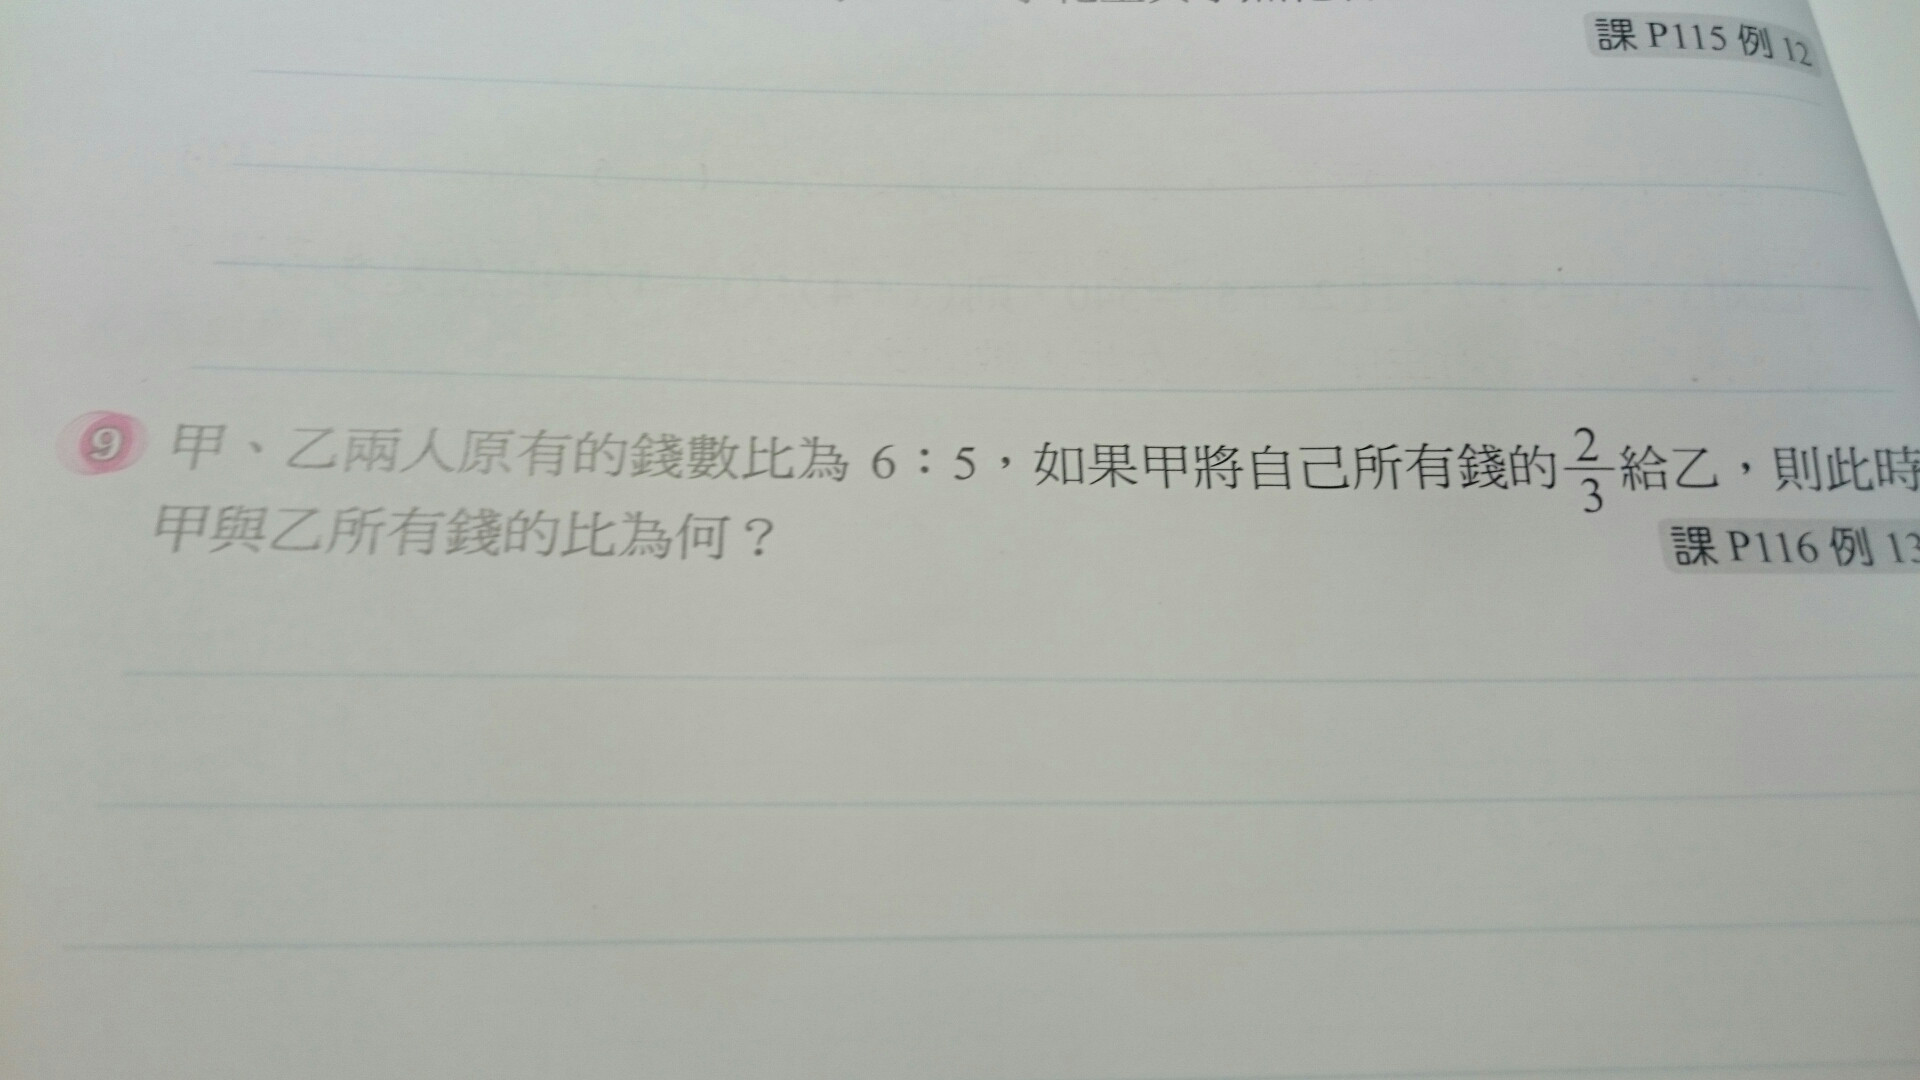 課 P115 例 12
9 甲、乙兩人原有的錢數比為 6：5，如果甲將自己所有錢的2/3給乙，則此時
甲與乙所有錢的比為何？
課 P116 例 13